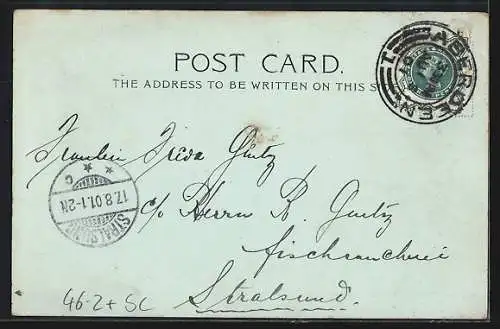 POST CARD.
THE ADDRESS TO BE WRITTEN ON THIS S
ABERDEEN
Fräulein Frida Gürtz
c/o Herrn R. Gürtz
Fischräucherei
Stralsund.
STRALSUND
17.8.01.1-2N
* *
C
46-2+ SC